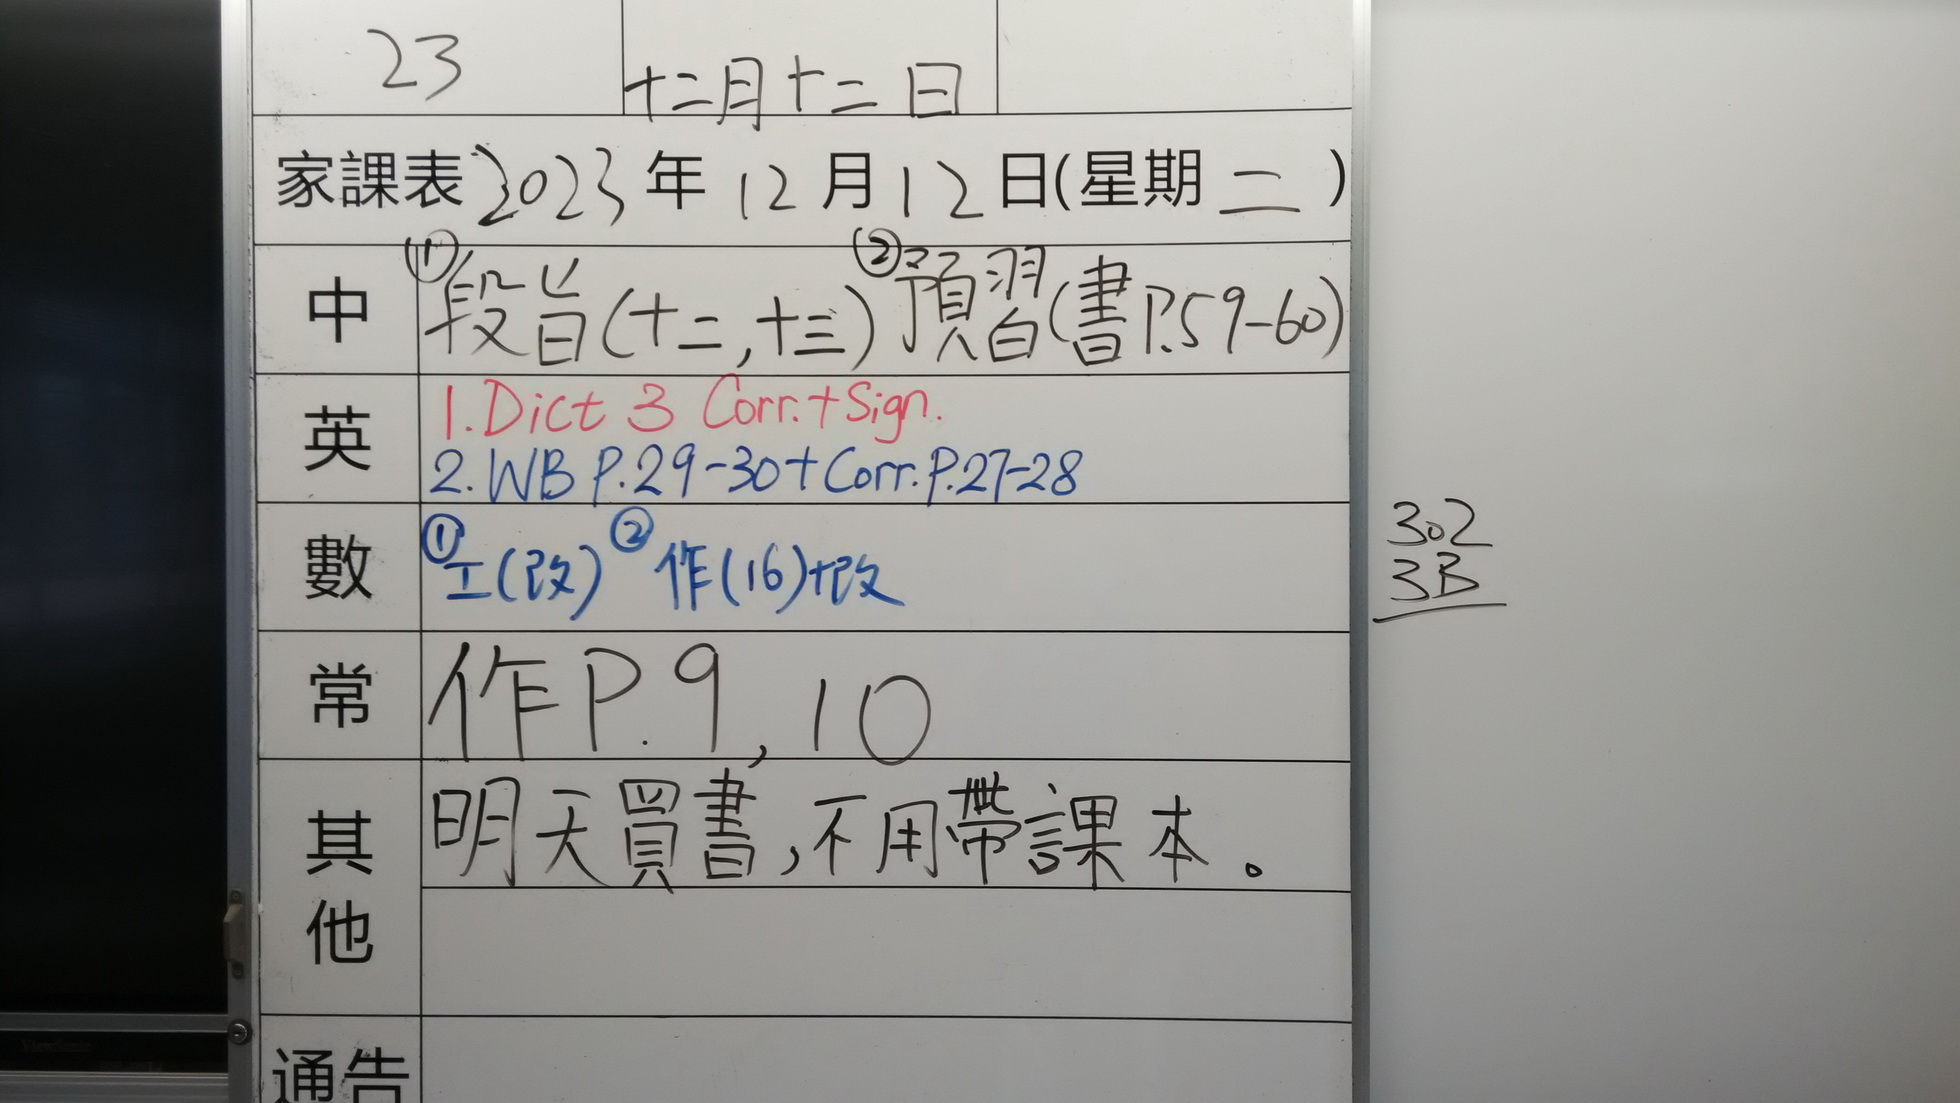 23
十二月十二日
家課表2023年12月12日(星期二)
中 ①段旨(十二,十三)②預習(書P.59-60)
英 1.Dict 3 Corr.+Sign.
2.WB P.29-30+Corr.P.27-28
數 ①工(改) ②作(16)+改
302
3B
常 作P.9,10
其他 明天買書,不用帶課本。
通告
ViewSonic